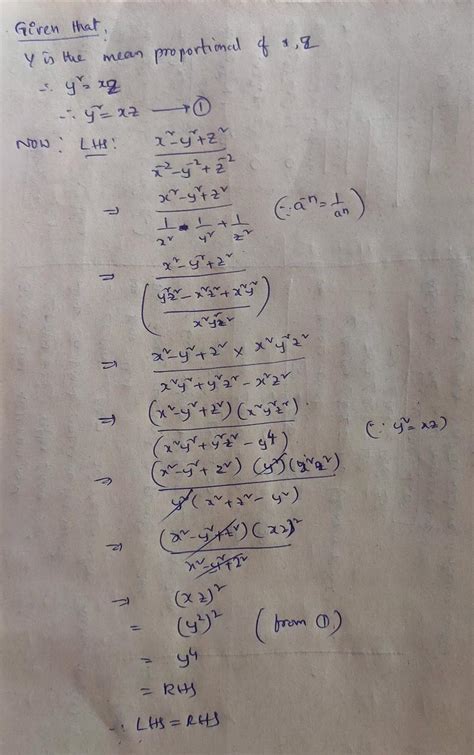 Given that,
y is the mean proportional of x, z
∴ y² = xz
∴ y² = xz ⟶ ①
Now: LHS: x² - y² + z² / x⁻² - y⁻² + z⁻²
⇒ x² - y² + z² / 1/x² - 1/y² + 1/z² (∵ a⁻ⁿ = 1/aⁿ)
⇒ x² - y² + z² / (y²z² - x²z² + x²y² / x²y²z²)
⇒ x² - y² + z² × x²y²z² / x²y² + y²z² - x²z²
⇒ (x² - y² + z²) (x²y²z²) / (x²y² + y²z² - y⁴) (∵ y² = xz)
⇒ (x² - y² + z²) (y²) (x²z²) / y² (x² + z² - y²)
⇒ (x² - y² + z²) (xz)² / x² - y² + z²
⇒ (xz)²
= (y²)² (from ①)
= y⁴
= RHS
∴ LHS = RHS